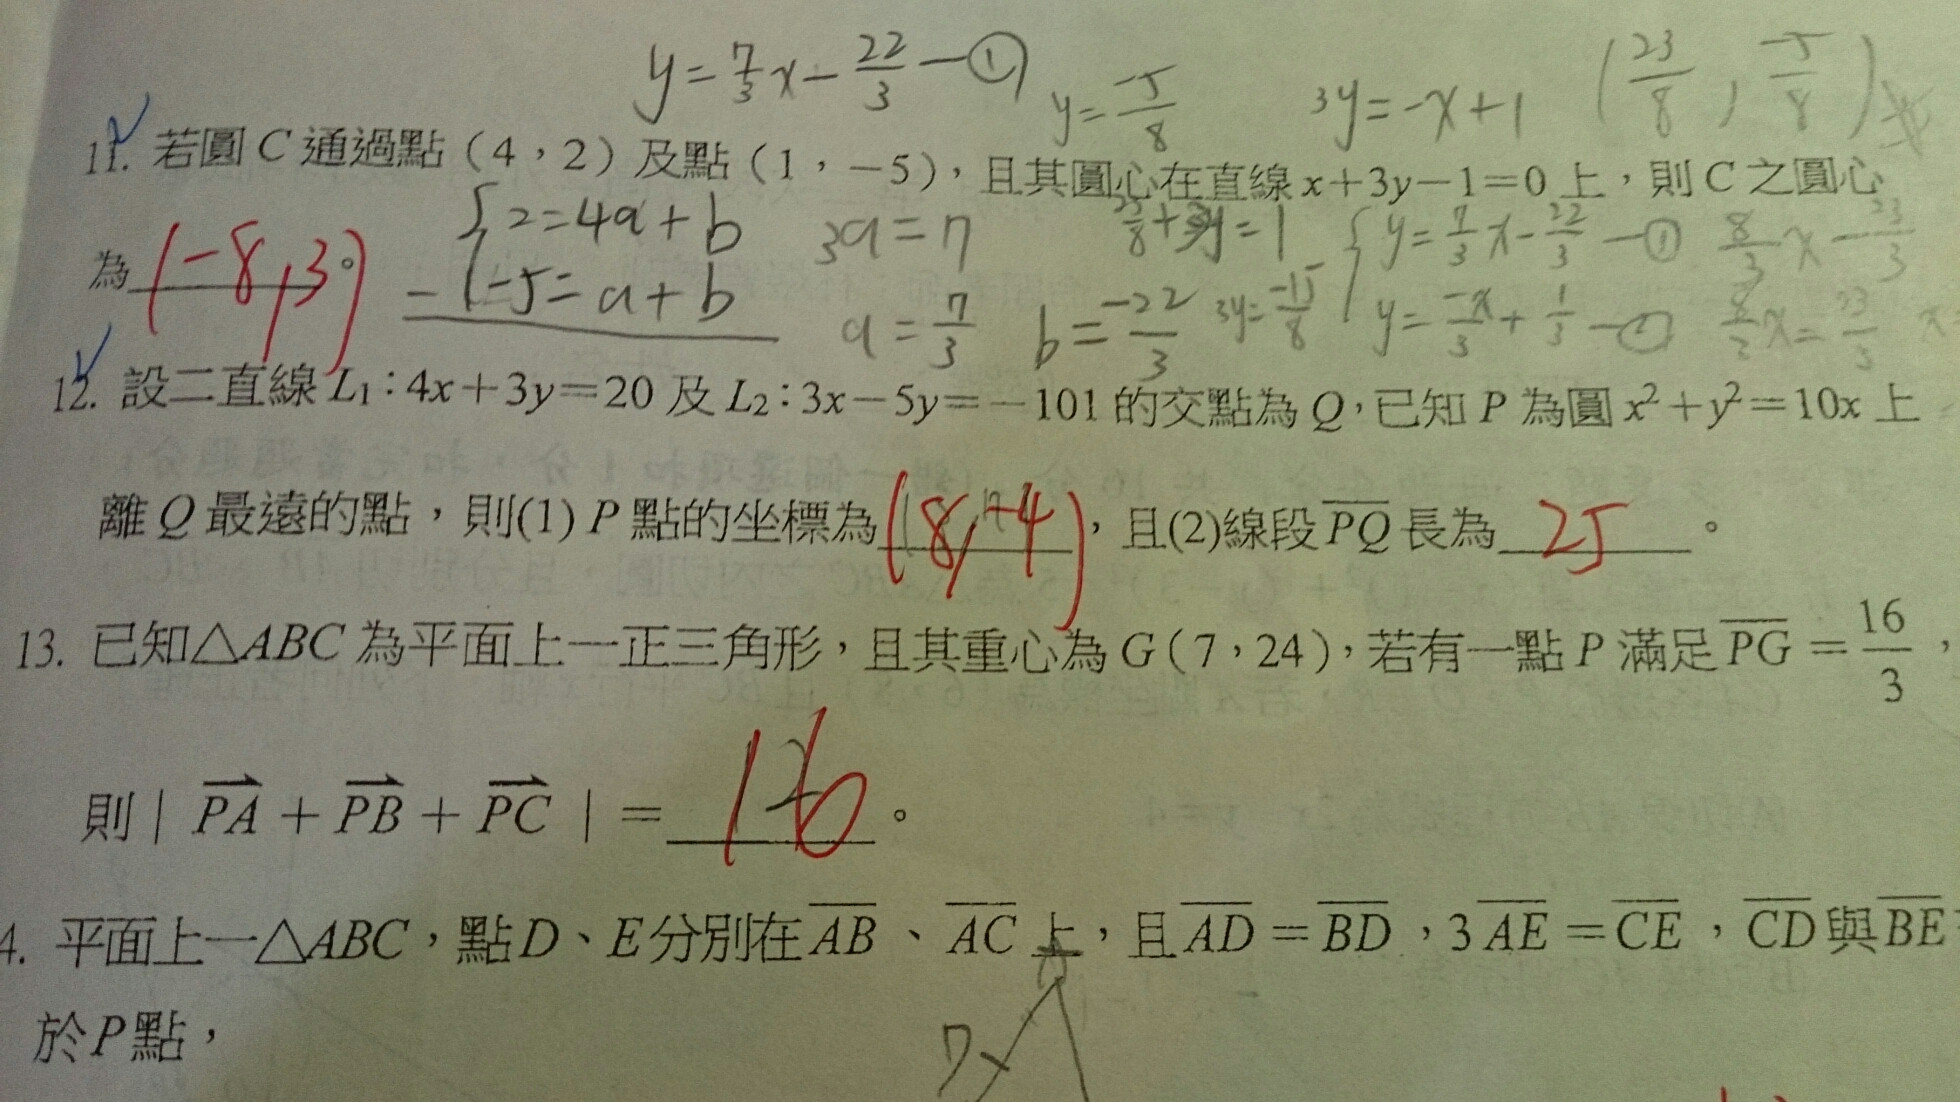 y=7/3x-22/3-①
y=-5/8
3y=-x+1
(23/8, -5/8)
11. 若圓 C 通過點(4,2)及點(1,-5),且其圓心在直線 x+3y-1=0 上,則 C 之圓心
{2=4a+b
3a=7
+3y=1
{y=7/3x-22/3-①
8/3x-23/3
為(-8,3)。
-5=a+b
a=7/3
b=-22/3
3y=-15/8
y=-x/3+1/3-②
x=23/3
12. 設二直線 L₁:4x+3y=20 及 L₂:3x-5y=-101 的交點為 Q,已知 P 為圓 x²+y²=10x 上
離 Q 最遠的點,則(1) P 點的坐標為(8,-4),且(2)線段 PQ 長為 25。
13. 已知△ABC 為平面上一正三角形,且其重心為 G(7,24),若有一點 P 滿足 PG=16/3,
則| PA + PB + PC |= 16。
4. 平面上一△ABC,點 D、E 分別在 AB、AC 上,且 AD=BD,3AE=CE,CD 與 BE
於 P 點,